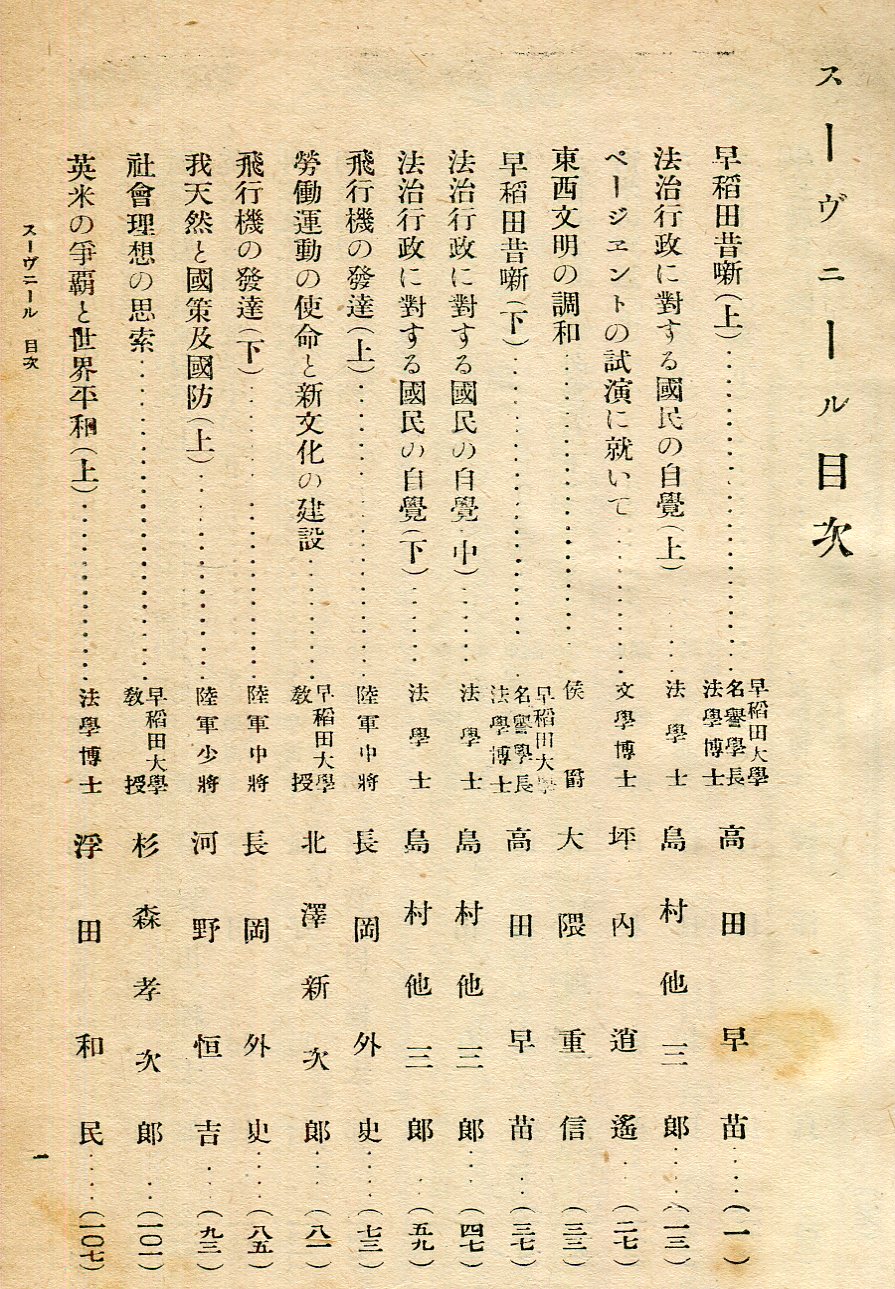 スーヴニール目次
早稻田昔噺(上)…………早稻田大學名譽學長法學博士 高田早苗……(一)
法治行政に對する國民の自覺(上)……法學士 島村他三郎……(一三)
ページエントの試演に就いて……文學博士 坪內逍遙……(二七)
東西文明の調和…………侯爵 大隈重信……(三三)
早稻田昔噺(下)…………早稻田大學名譽學長法學博士 高田早苗……(三七)
法治行政に對する國民の自覺(中)……法學士 島村他三郎……(四七)
法治行政に對する國民の自覺(下)……法學士 島村他三郎……(五九)
飛行機の發達(上)…………陸軍中將 長岡外史……(七三)
勞働運動の使命と新文化の建設……早稻田大學敎授 北澤新次郎……(八一)
飛行機の發達(下)…………陸軍中將 長岡外史……(八五)
我天然と國策及國防(上)…………陸軍少將 河野恒吉……(九三)
社會理想の思索…………早稻田大學敎授 杉森孝次郎……(一〇一)
英米の爭覇と世界平和(上)…………法學博士 浮田和民……(一〇七)
スーヴニール 目次
一